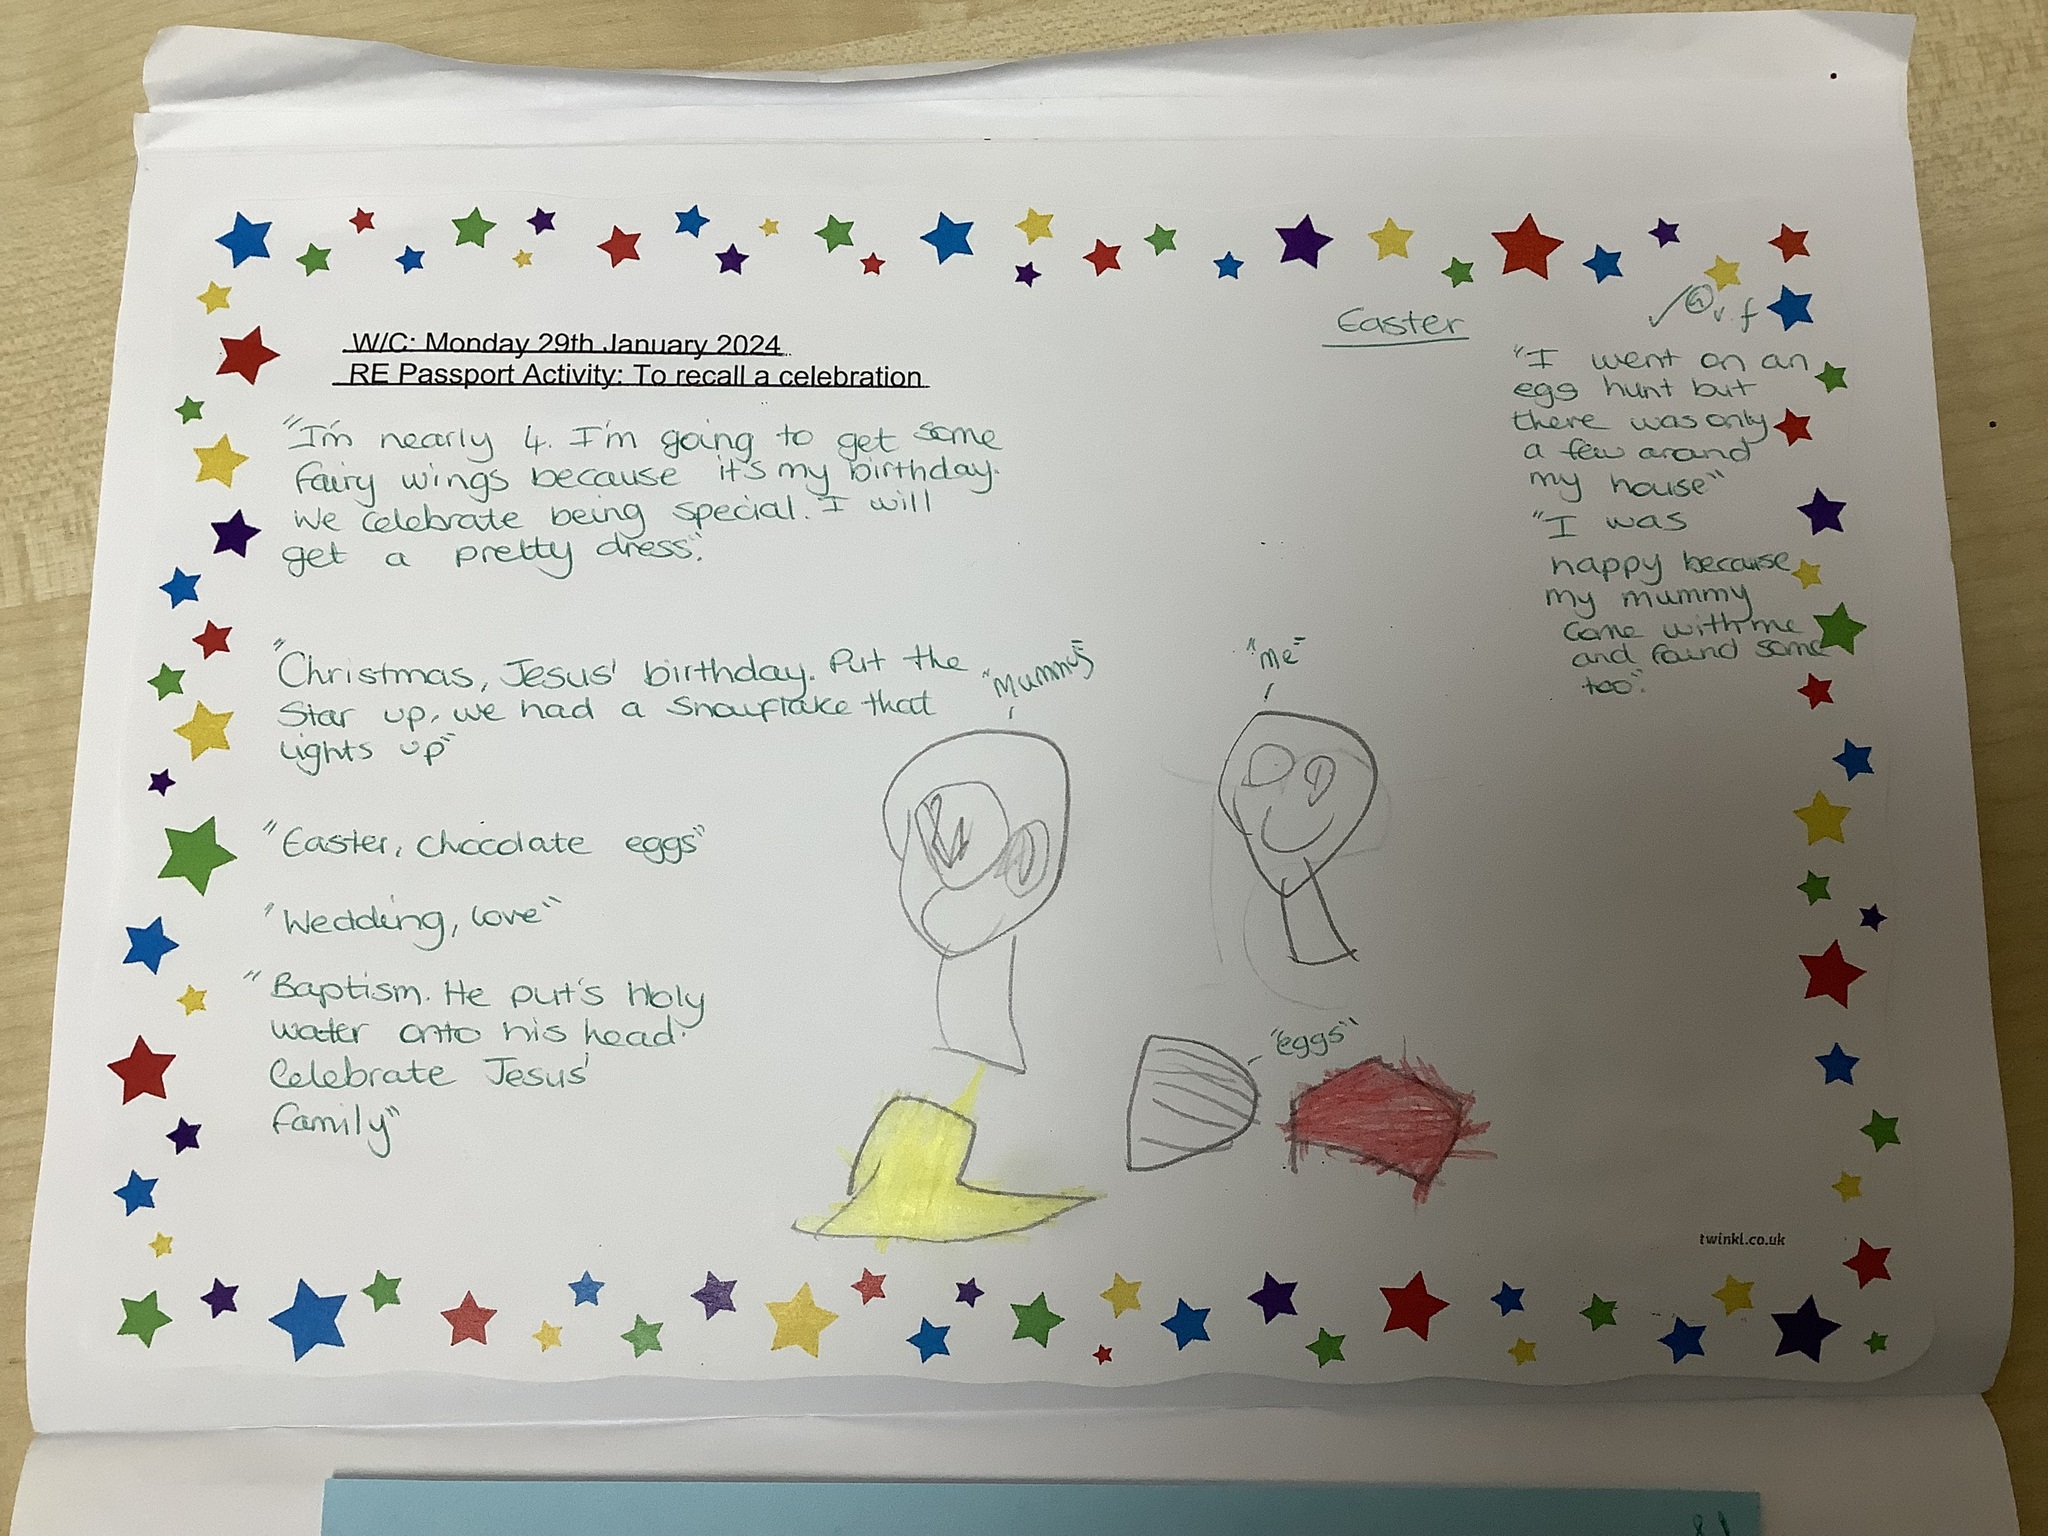 W/C: Monday 29th January 2024
RE Passport Activity: To recall a celebration
"I'm nearly 4. I'm going to get some
fairy wings because it's my birthday.
We celebrate being special. I will
get a pretty dress."
"Christmas, Jesus' birthday. Put the
Star up, we had a snowflake that
lights up"
"Easter, chocolate eggs"
"Wedding, love"
"Baptism. He put's Holy
water onto his head.
Celebrate Jesus'
family"
Easter
"I went on an
egg hunt but
there was only
a few around
my house"
"I was
happy because
my mummy
came with me
and found some
too".
"Mummy"
"me"
"eggs"
twinkl.co.uk